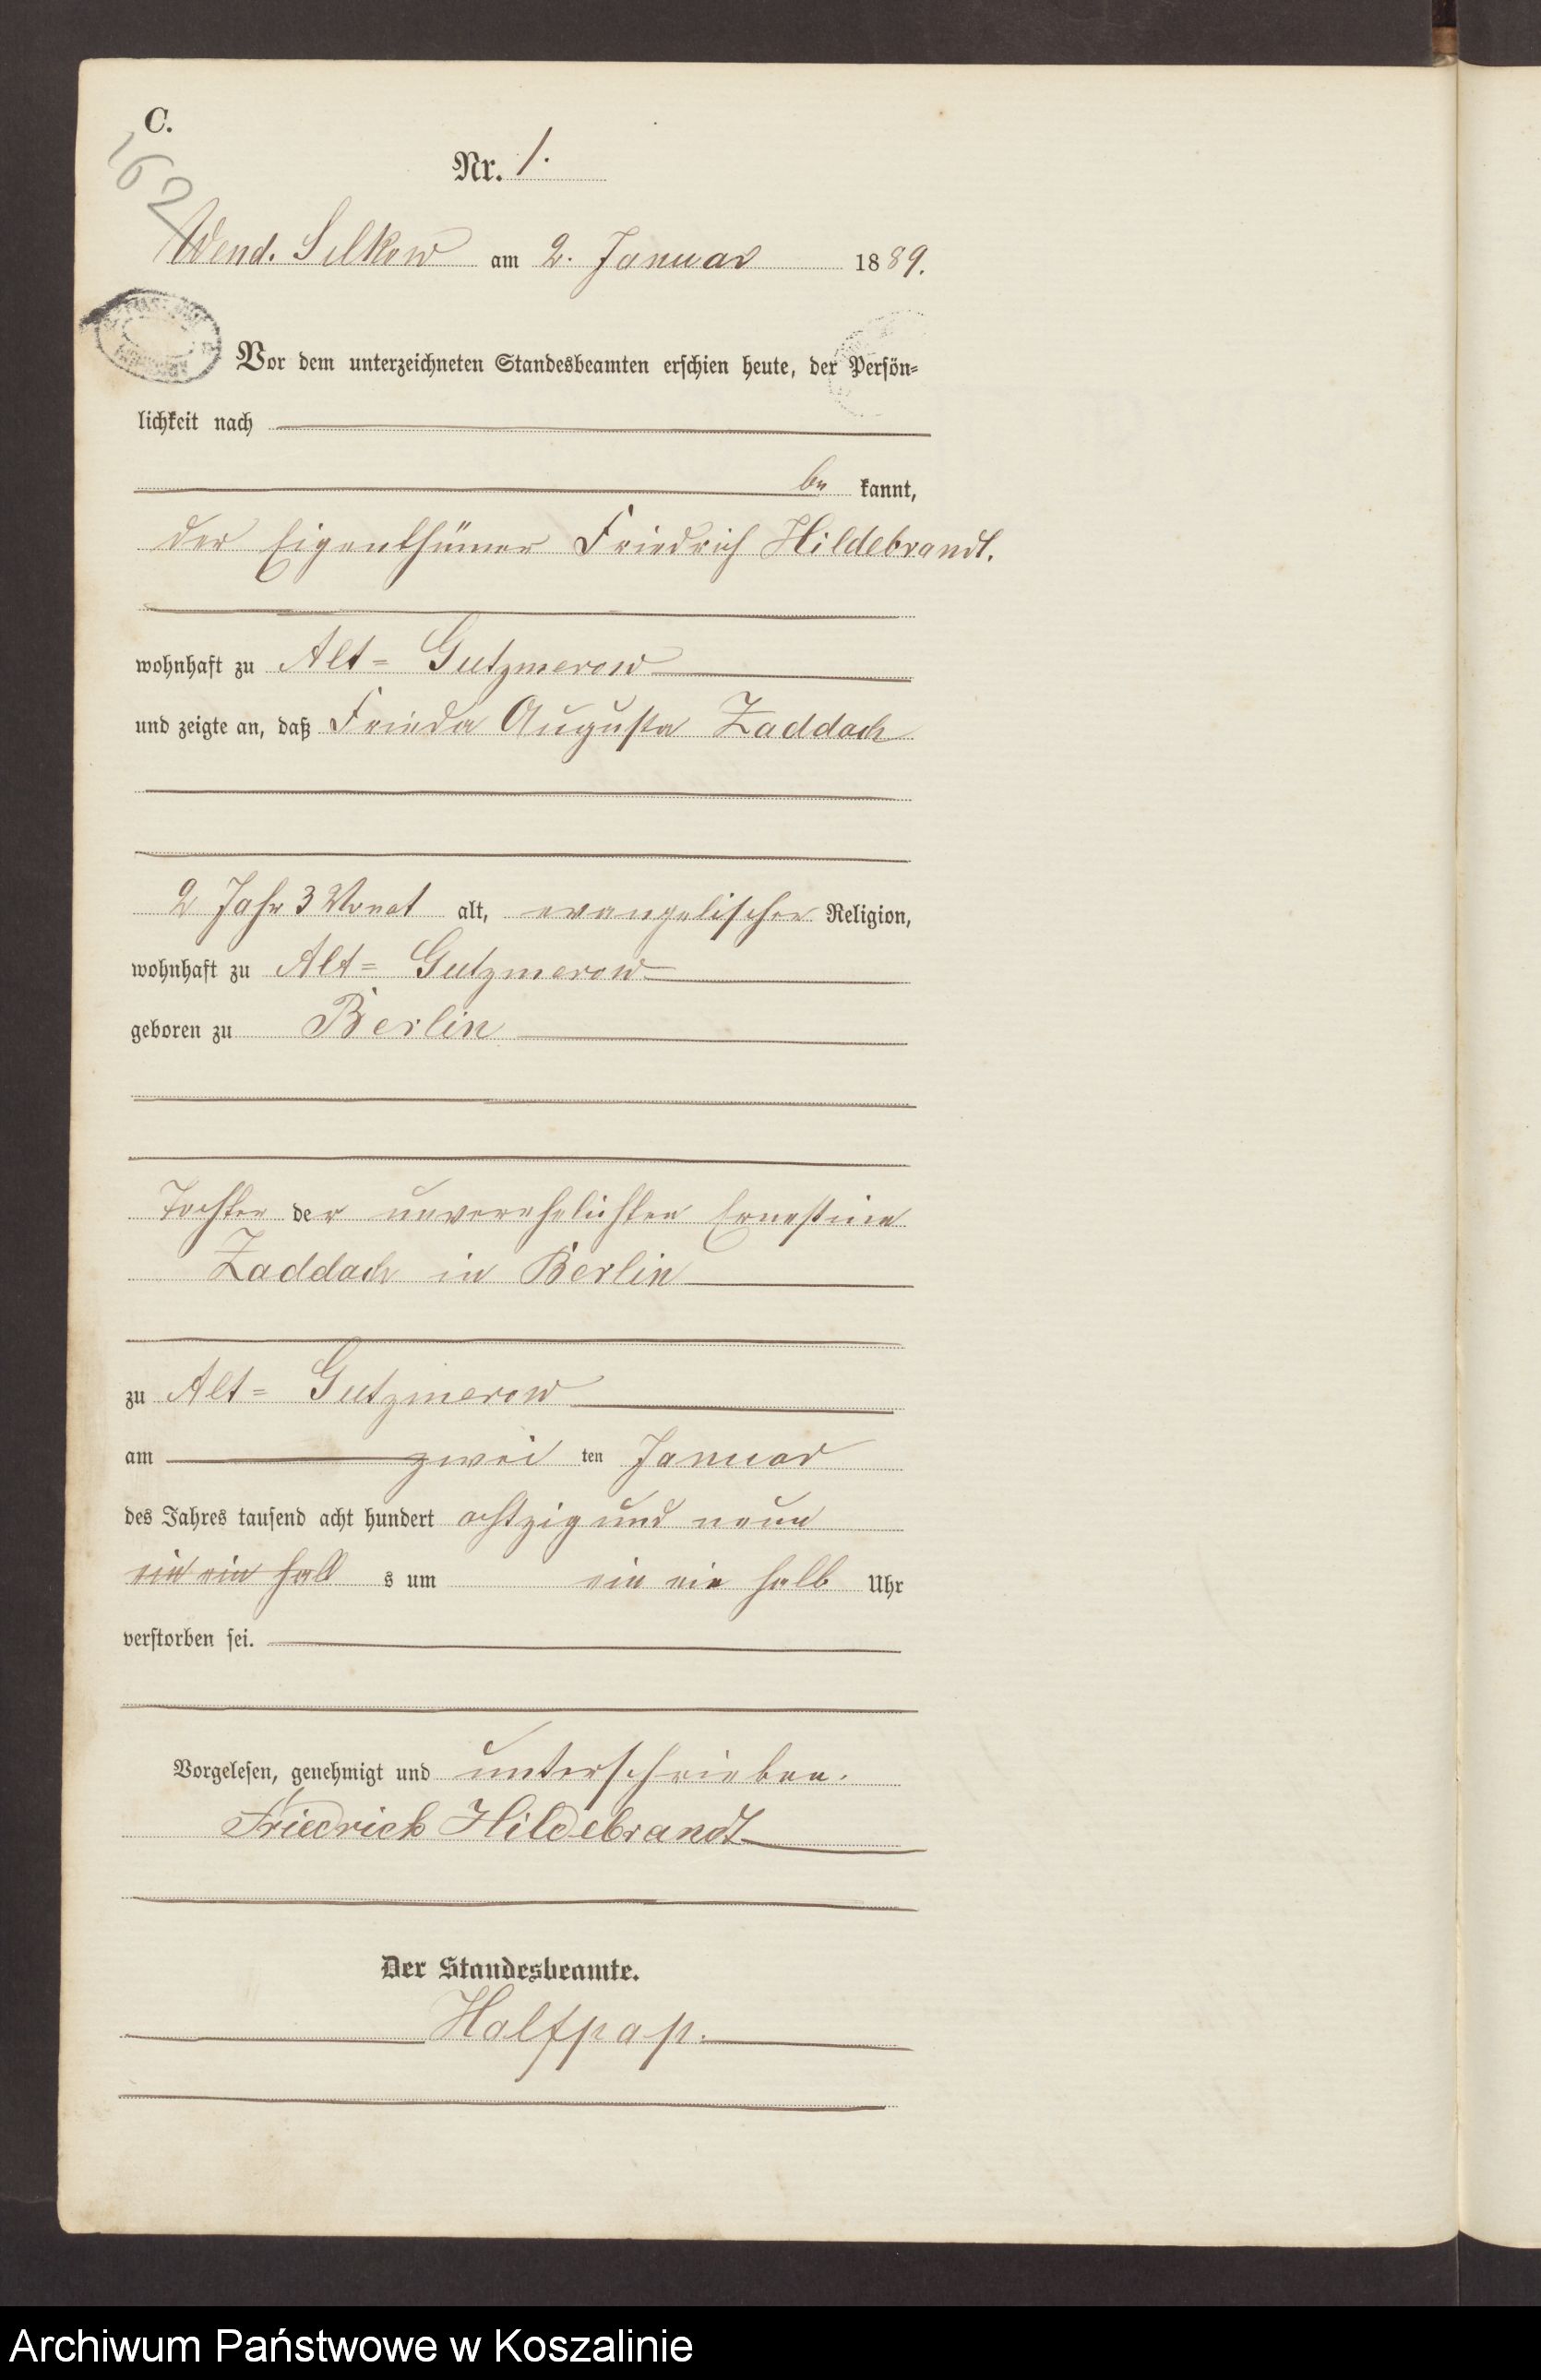 C.
162
Nr. 1.
Wend. Silkow am 2. Januar 1889.
Vor dem unterzeichneten Standesbeamten erschien heute, der Persön-
lichkeit nach
be kannt,
der Eigenthümer Friedrich Hildebrandt.
wohnhaft zu Alt- Gutzmerow
und zeigte an, daß Frieda Augusta Zaddach
2 Jahr 3 Monat alt, evangelischer Religion,
wohnhaft zu Alt- Gutzmerow
geboren zu Berlin
Tochter der unverehelichten Ernestine
Zaddach in Berlin
zu Alt- Gutzmerow
am zwei ten Januar
des Jahres tausend acht hundert achtzig und neun
s um ein ein halb Uhr
verstorben sei.
Vorgelesen, genehmigt und unterschrieben.
Friedrich Hildebrandt
Der Standesbeamte.
Halfpap.
Archiwum Państwowe w Koszalinie